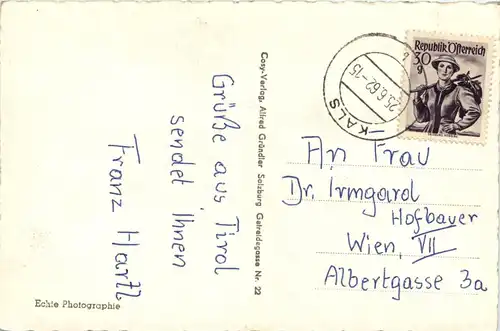 Grüße aus Tirol
sendet Ihnen
Franz Hartl
Echte Photographie
Cosy-Verlag, Alfred Gründler Salzburg Getreidegasse Nr. 22
KALS
25.6.62-15
Republik Österreich
30
g
An Frau
Dr. Irmgard
Hofbauer
Wien, VII
Albertgasse 3a